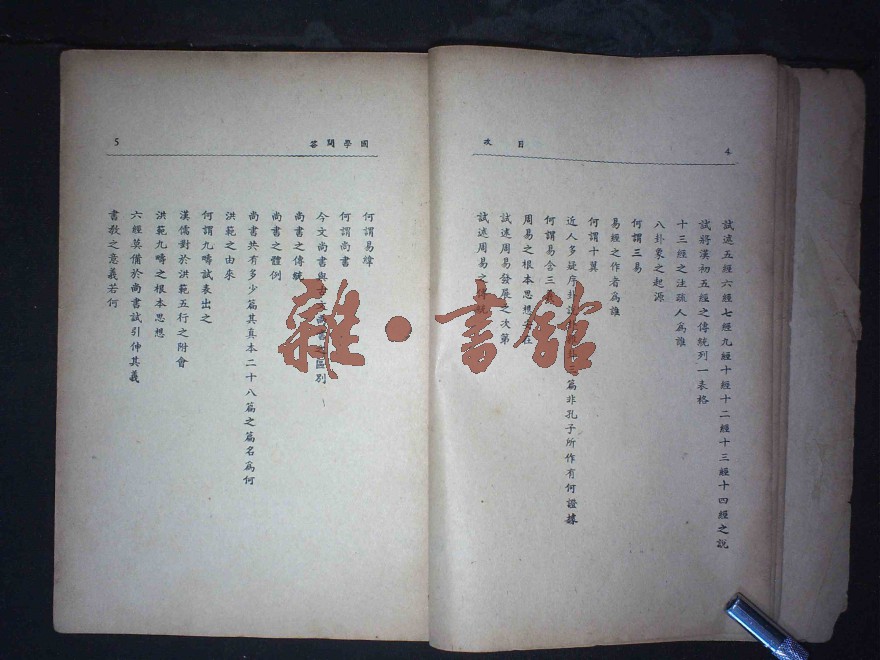 目次
4
試述五經六經七經九經十經十二經十三經十四經之說
試將漢初五經之傳統列一表格
十三經之注疏人為誰
八卦象之起源
何謂三易
易經之作者為誰
何謂十翼
近人多疑序卦說卦雜卦三篇非孔子所作有何證據
何謂易含三義
周易之根本思想安在
試述周易發展之次第
試述周易之傳統
國學問答
5
何謂易緯
何謂尚書
今文尚書與古文尚書之區別
尚書之傳統
尚書之體例
尚書共有多少篇其真本二十八篇之篇名為何
洪範之由來
何謂九疇試表出之
漢儒對於洪範五行之附會
洪範九疇之根本思想
六經莫備於尚書試引伸其義
書教之意義若何
雜·書館